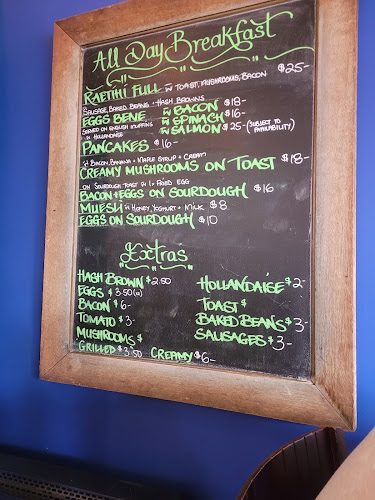 All Day Breakfast
RAETIHI FULL w TOAST, MUSHROOMS, BACON $25-
SAUSAGE, BAKED BEANS + HASH BROWNS
EGGS BENE w BACON $18-
SERVED ON ENGLISH MUFFINS w SPINACH $16-
w HOLLANDAISE w SALMON $25- (SUBJECT TO AVAILABILITY)
PANCAKES $16-
w BACON, BANANA + MAPLE SYRUP + CREAM
CREAMY MUSHROOMS ON TOAST $18-
ON SOURDOUGH TOAST w 1 FRIED EGG
BACON + EGGS ON SOURDOUGH $16
MUESLI w HONEY, YOGHURT + MILK $8
EGGS ON SOURDOUGH $10
Extras
HASH BROWN $2.50
EGGS $3.50
BACON $6-
TOMATO $3-
MUSHROOMS $
GRILLED $3.50 CREAMY $6-
HOLLANDAISE $2-
TOAST $
BAKED BEANS $3-
SAUSAGES $3-